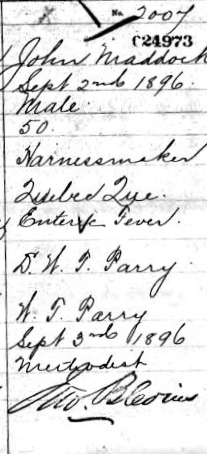 No. 2007
C24973
John Maddock
Sept 2nd 1896.
Male.
50.
Harnessmaker
Quebec Que.
Enteric Fever.
D. W. T. Parry
W. T. Parry
Sept 3rd 1896
Methodist